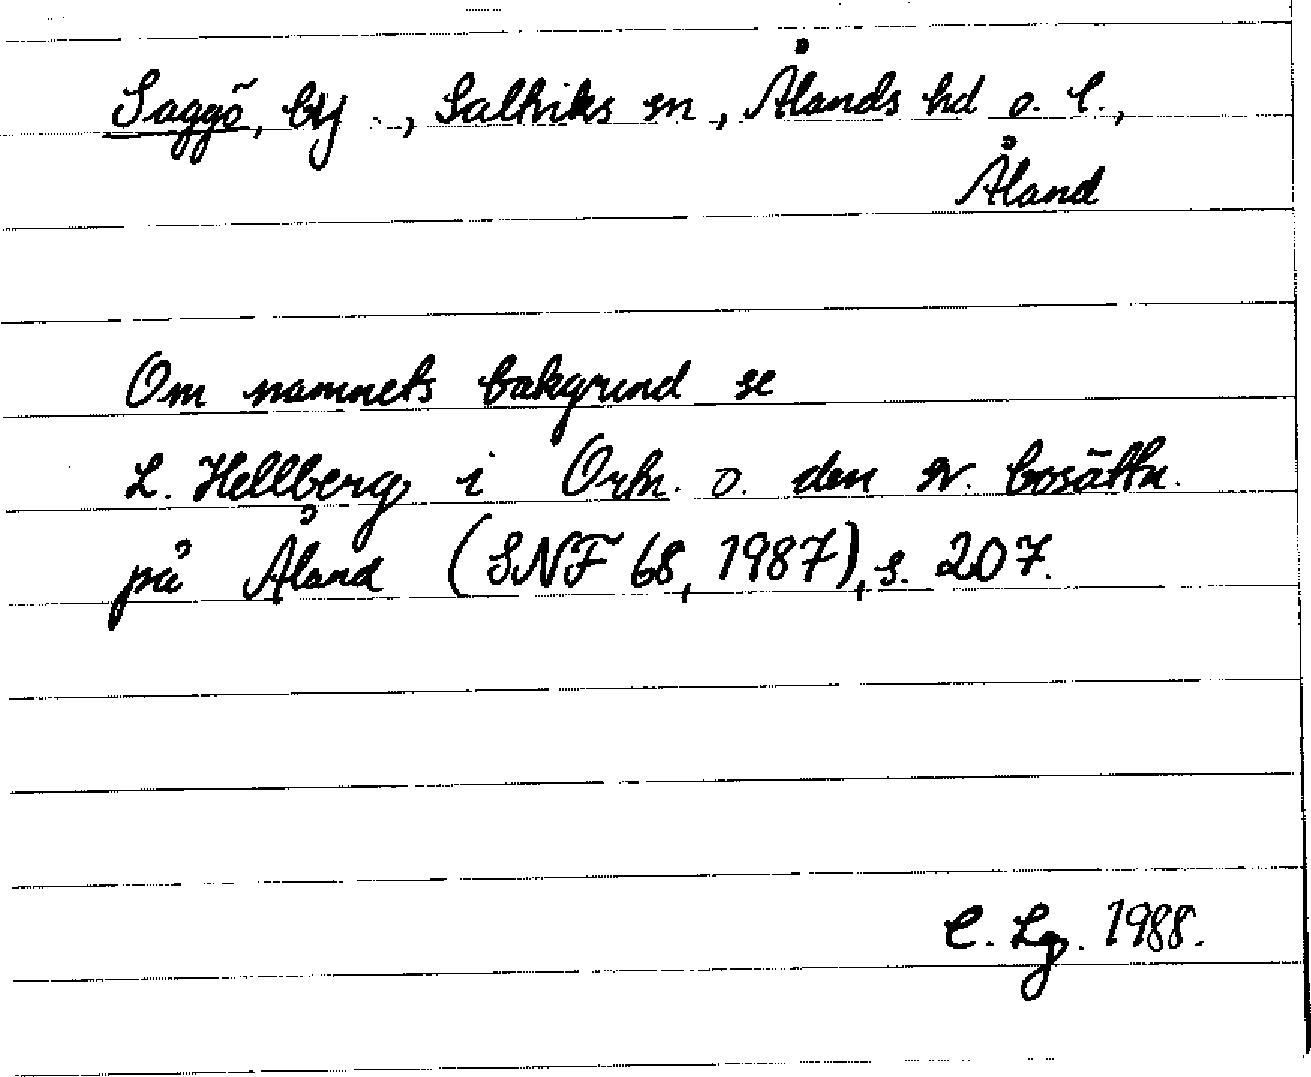 Saggö, by, Saltviks sn, Ålands hd o. l.,
Åland
Om namnets bakgrund se
L. Hellberg i Ortn. o. den sv. bosättn.
på Åland (SNF 68, 1987), s. 207.
C. Lg. 1988.